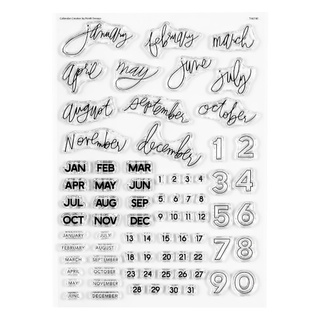 january february march
april may june july
august september october
November december
1 2
3 4
5 6
7 8
9 0
JAN FEB MAR
APR MAY JUN
JUL AUG SEP
OCT NOV DEC
1 2 3 4
5 6 7 8
9 10 11 12
JANUARY JULY
FEBRUARY AUGUST
MARCH SEPTEMBER
APRIL OCTOBER
MAY NOVEMBER
JUNE DECEMBER
13 14 15 16 17
18 19 20 21 22
23 24 25 26 27
28 29 30 31